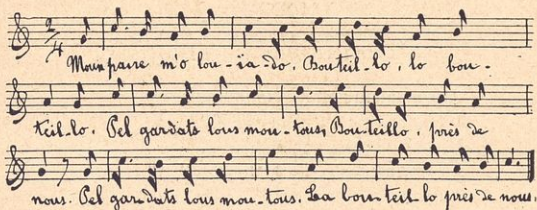 2/4
Moun païre m'o lou-ia-do. Bouteil-lo, lo bou-
teil-lo. Pel gardats lous mou-tous, Bou-teillo, près de
nous. Pel gar-dats lous mou-tous. La bou-teil lo près de nous.